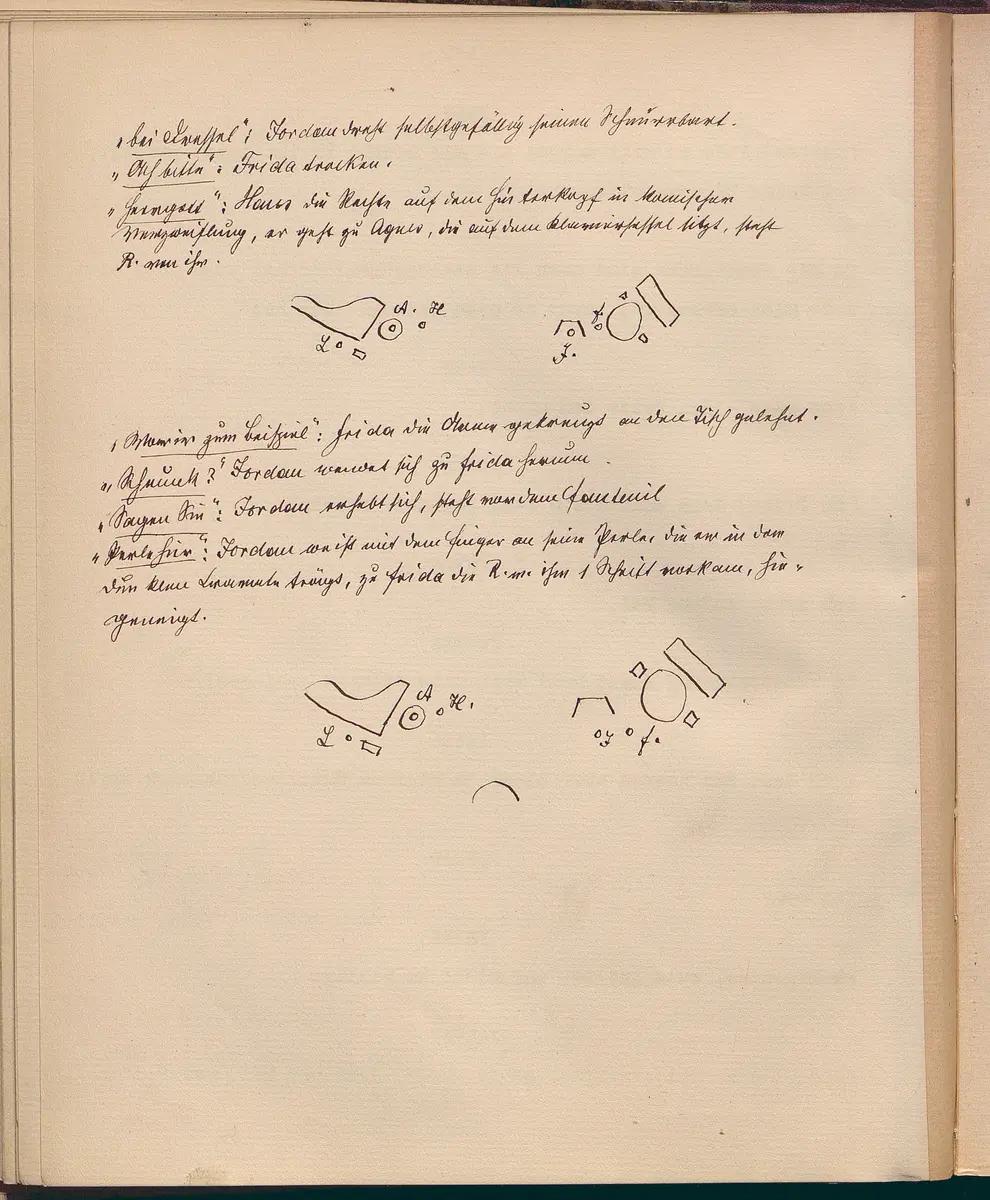 „bei Dressel“: Jordan dreht selbstgefällig seinen Schnurrbart.
„Ach bitte“: Frida trocken.
„Herrgott“: Hans die Rechte auf dem Hinterkopf in komischer
Verzweiflung, er geht zu Agnes, die auf dem Klaviersessel sitzt, steht
R. von ihr.
A. H
L
F.
J.
zum Beispiel“: Frida die Arme gekreuzt an den Tisch gelehnt.
„Schmuck?“ Jordan wendet sich zu Frida herum
„Sagen Sie“: Jordan erhebt sich, steht vor dem Fauteuil
„Perle hier“: Jordan weist mit dem Finger an seine Perle, die er in der
dunklen Krawatte trägt, zu Frida die R. v. ihm 1 Schritt vorkam, hin-
geneigt.
A H.
L
J F.